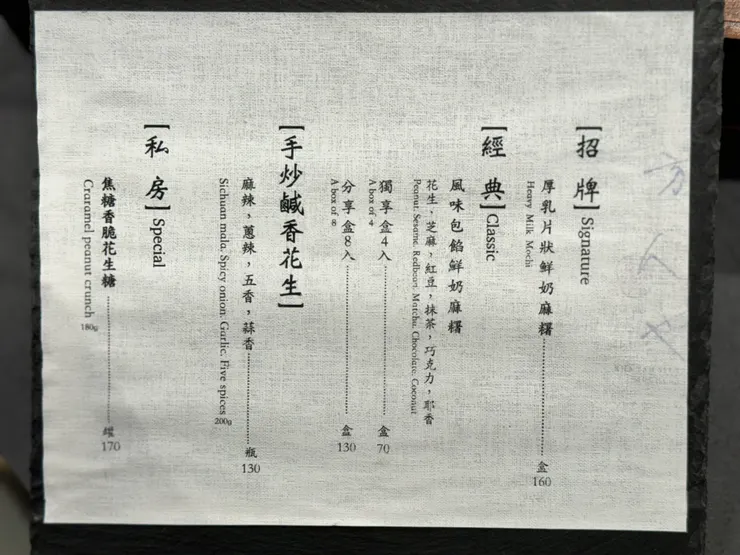 【招牌】Signature
厚乳片狀鮮奶麻糬………盒160
Heavy Milk Mochi
【經典】Classic
風味包餡鮮奶麻糬
花生、芝麻，紅豆，抹茶，巧克力，耶香
Peanut. Sesame. Redbean. Matcha. Chocolate. Coconut
獨享盒4入………盒70
A box of 4
分享盒8入………盒130
A box of 8
【手炒鹹香花生】
麻辣，蔥辣，五香，蒜香………瓶130
Sichuan mala. Spicy onion. Garlic. Five spices 200g
【私房】Special
焦糖香脆花生糖………罐170
Craramel peanut crunch 180g